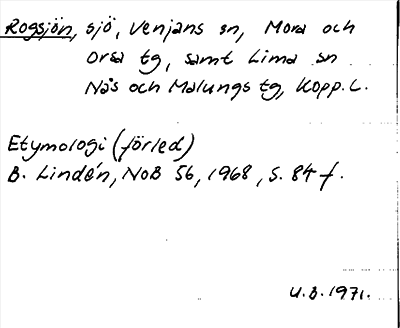 Rogsjön, sjö, Venjans sn, Mora och
Orsa tg, samt Lima sn
Nås och Malungs tg, Kopp. L.
Etymologi (förled)
B. Lindén, NoB 56, 1968, s. 84 f.
U.B. 1971.